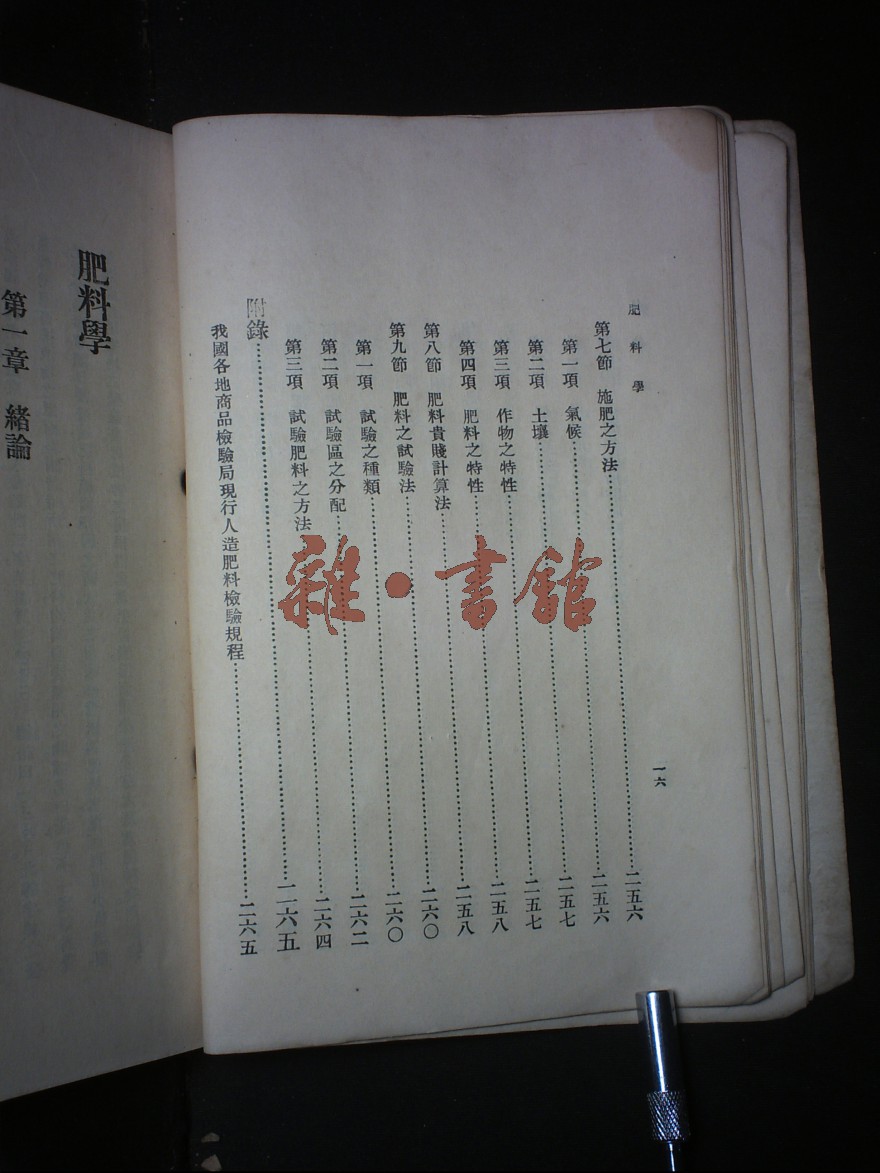 肥料學
一六
第七節 施肥之方法……二五六
第一項 氣候……二五六
第二項 土壤……二五七
第三項 作物之特性……二五七
第四項 肥料之特性……二五八
第八節 肥料貴賤計算法……二五八
第九節 肥料之試驗法……二六〇
第一項 試驗之種類……二六〇
第二項 試驗區之分配……二六二
第三項 試驗肥料之方法……二六四
附錄……二六五
我國各地商品檢驗局現行人造肥料檢驗規程……二六五
肥料學
第一章 緒論
雜·書館